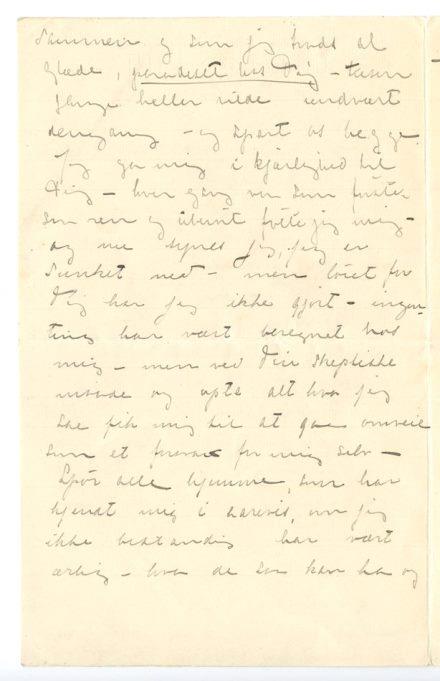 Sammen og som jeg trods al
glæde, paradiset hos Dig – tusen
gange heller vilde undvært
dengang – og spart os begge.
Jeg ga mig i kjærlighed til
Dig – hver gang var som første
som ren og uberørt følte jeg mig –
og nu synes jeg, jeg er
sunket ned – men løiet for
Dig har jeg ikke gjort – ingen-
ting har vært beregnet hos
mig – men ved Din skeptiske
maade og opta alt hva jeg
sae fik mig til at gaa omveie
som et forsvar for mig selv –
Spør alle hjemme, som har
kjendt mig i aarevis, om jeg
ikke bestandig har vært
ærlig – hva de saa kan ha og